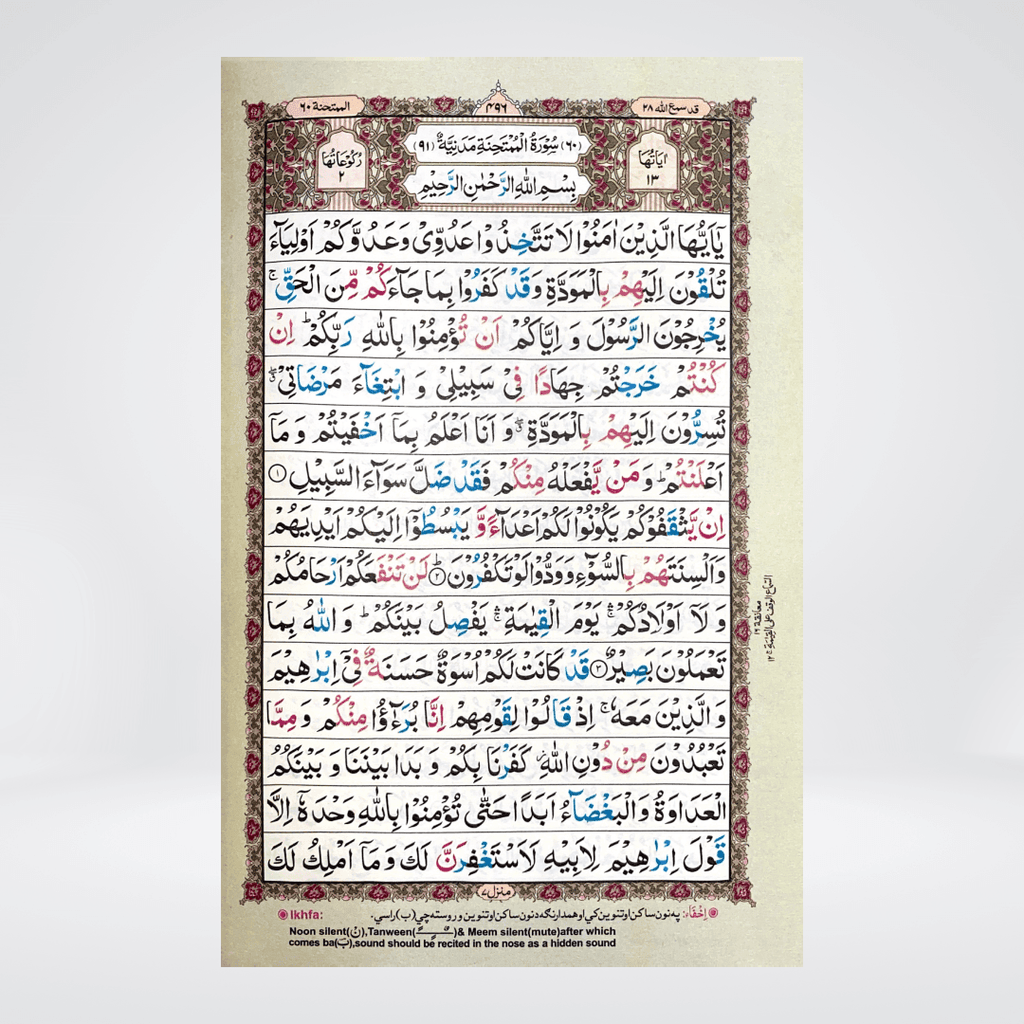 قد سمع الله ٢٨
٤٩٦
الممتحنة ٦٠
اٰيَاتُهَا ١٣
(٦٠) سُوْرَةُ الْمُمْتَحِنَةِ مَدَنِيَّةٌ (٩١)
رُكُوْعَاتُهَا ٢
بِسْمِ اللّٰهِ الرَّحْمٰنِ الرَّحِيْمِ
يٰۤاَيُّهَا الَّذِيْنَ اٰمَنُوْا لَا تَتَّخِذُوْا عَدُوِّىْ وَعَدُوَّكُمْ اَوْلِيَآءَ
تُلْقُوْنَ اِلَيْهِمْ بِالْمَوَدَّةِ وَقَدْ كَفَرُوْا بِمَا جَآءَكُمْ مِّنَ الْحَقِّ ۚ
يُخْرِجُوْنَ الرَّسُوْلَ وَ اِيَّاكُمْ اَنْ تُؤْمِنُوْا بِاللّٰهِ رَبِّكُمْ ؕ اِنْ
كُنْتُمْ خَرَجْتُمْ جِهَادًا فِىْ سَبِيْلِىْ وَ ابْتِغَآءَ مَرْضَاتِىْ ۖ
تُسِرُّوْنَ اِلَيْهِمْ بِالْمَوَدَّةِ ۖ وَ اَنَا اَعْلَمُ بِمَاۤ اَخْفَيْتُمْ وَ مَاۤ
اَعْلَنْتُمْ ؕ وَ مَنْ يَّفْعَلْهُ مِنْكُمْ فَقَدْ ضَلَّ سَوَآءَ السَّبِيْلِ ١
اِنْ يَّثْقَفُوْكُمْ يَكُوْنُوْا لَكُمْ اَعْدَآءً وَّ يَبْسُطُوْۤا اِلَيْكُمْ اَيْدِيَهُمْ
وَاَلْسِنَتَهُمْ بِالسُّوْٓءِ وَوَدُّوْا لَوْ تَكْفُرُوْنَ ؕ ٢ لَنْ تَنْفَعَكُمْ اَرْحَامُكُمْ
وَ لَاۤ اَوْلَادُكُمْ ۛ يَوْمَ الْقِيٰمَةِ ۛ يَفْصِلُ بَيْنَكُمْ ؕ وَ اللّٰهُ بِمَا
تَعْمَلُوْنَ بَصِيْرٌ ٣ قَدْ كَانَتْ لَكُمْ اُسْوَةٌ حَسَنَةٌ فِىْۤ اِبْرٰهِيْمَ
وَ الَّذِيْنَ مَعَهٗ ۚ اِذْ قَالُوْا لِقَوْمِهِمْ اِنَّا بُرَءٰٓؤُا مِنْكُمْ وَ مِمَّا
تَعْبُدُوْنَ مِنْ دُوْنِ اللّٰهِ كَفَرْنَا بِكُمْ وَ بَدَا بَيْنَنَا وَ بَيْنَكُمُ
الْعَدَاوَةُ وَ الْبَغْضَآءُ اَبَدًا حَتّٰى تُؤْمِنُوْا بِاللّٰهِ وَحْدَهٗۤ اِلَّا
قَوْلَ اِبْرٰهِيْمَ لِاَبِيْهِ لَاَسْتَغْفِرَنَّ لَكَ وَ مَاۤ اَمْلِكُ لَكَ
منزل ٧
اِخْفَاء: په نون ساکن او تنوین کي او همدارنګه د نون ساکن او تنوین وروسته چي (ب) راسي.
Ikhfa:
Noon silent(نْ),Tanween(ـًـٍـٌ)& Meem silent(mute)after which
comes ba(بَ),sound should be recited in the nose as a hidden sound